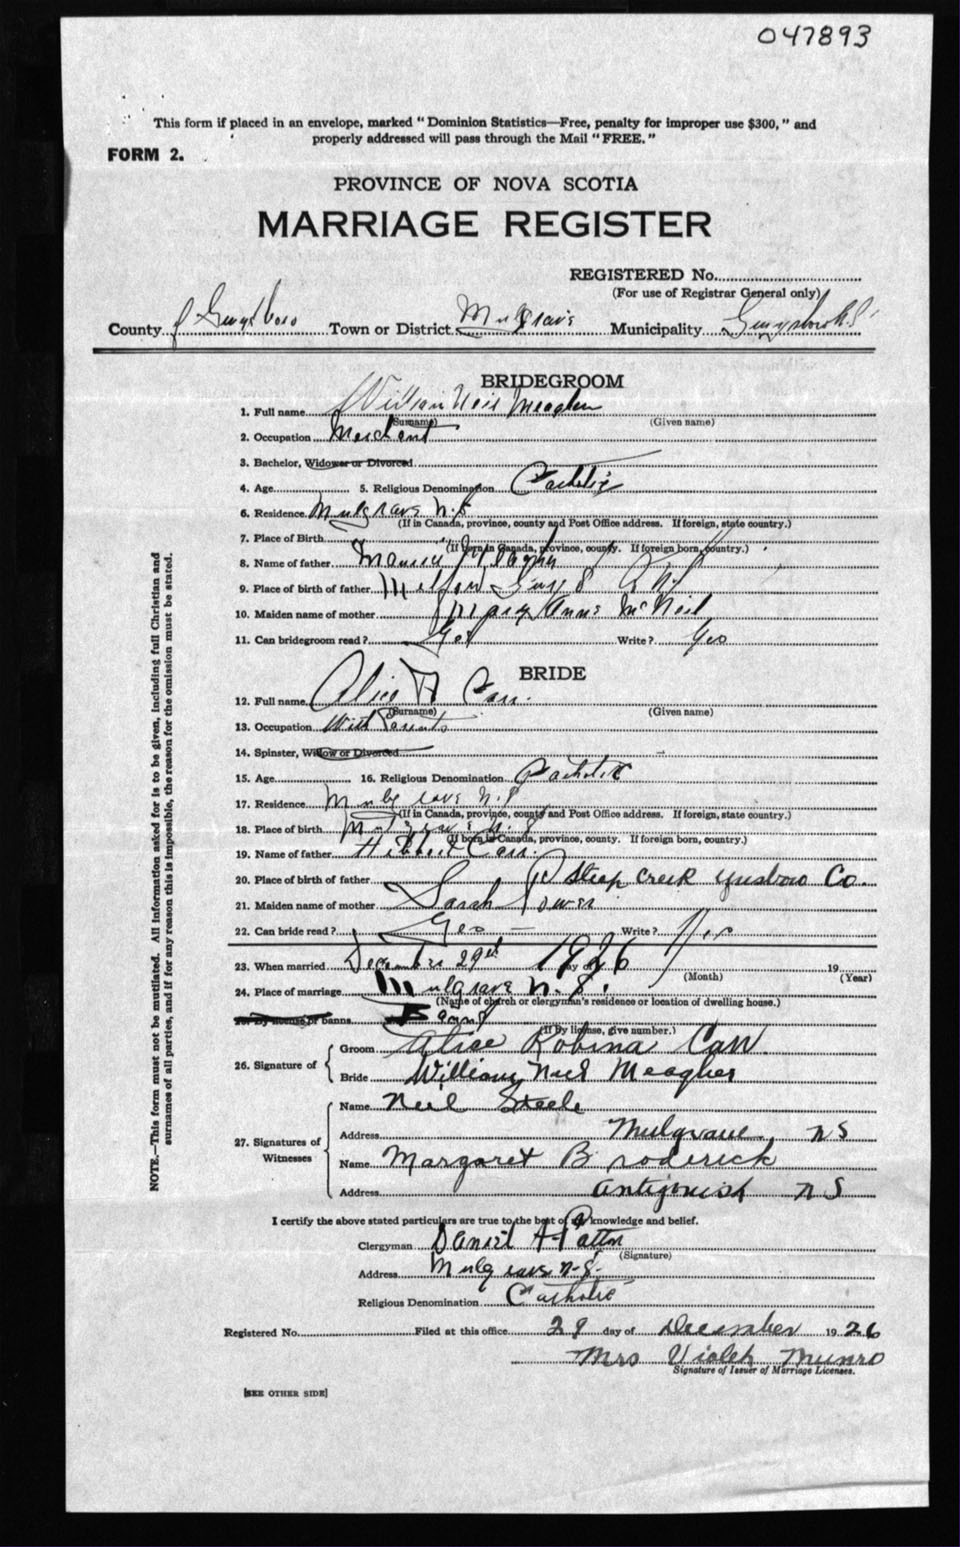 047893
This form if placed in an envelope, marked "Dominion Statistics—Free, penalty for improper use $300," and
properly addressed will pass through the Mail "FREE."
FORM 2.
PROVINCE OF NOVA SCOTIA
MARRIAGE REGISTER
REGISTERED No.
(For use of Registrar General only)
County of Guysboro Town or District Mulgrave Municipality Guysboro N.S.
BRIDEGROOM
1. Full name William Neil Meagher
(Surname) (Given name)
2. Occupation Merchant
3. Bachelor, Widower or Divorced
4. Age 5. Religious Denomination Catholic
6. Residence Mulgrave N.S
(If in Canada, province, county and Post Office address. If foreign, state country.)
7. Place of Birth
(If born in Canada, province, county. If foreign born, country.)
8. Name of father Maurice Meagher
9. Place of birth of father Milford Guys
10. Maiden name of mother Mary Anne McNeil
11. Can bridegroom read? Yes Write? Yes
BRIDE
12. Full name Alice R Carr.
(Surname) (Given name)
13. Occupation With Parents
14. Spinster, Widow or Divorced
15. Age 16. Religious Denomination Catholic
17. Residence Mulgrave N.S
(If in Canada, province, county and Post Office address. If foreign, state country.)
18. Place of birth Mulgrave N.S
(If born in Canada, province, county. If foreign born, country.)
19. Name of father Hibbert Carr.
20. Place of birth of father Steep Creek Guysboro Co.
21. Maiden name of mother Sarah Power
22. Can bride read? Yes Write? Yes
23. When married December 29th day of 1926 19
(Month) (Year)
24. Place of marriage Mulgrave N.S.
(Name of church or clergyman's residence or location of dwelling house.)
25. By license or banns Banns
(If by license, give number.)
26. Signature of
Groom Alice Robina Carr.
Bride William Neil Meagher
27. Signatures of Witnesses
Name Neil Steele
Address Mulgrave, NS
Name Margaret Broderick
Address Antigonish NS
I certify the above stated particulars are true to the best of my knowledge and belief.
Clergyman Daniel A Patton
(Signature)
Address Mulgrave N.S.
Religious Denomination Catholic
Registered No. Filed at this office 29 day of December 1926
Mrs Violet Munro
Signature of Issuer of Marriage Licenses.
[SEE OTHER SIDE]
NOTE.—This form must not be mutilated. All information asked for is to be given, including full Christian and
surnames of all parties, and if for any reason this is impossible, the reason for the omission must be stated.